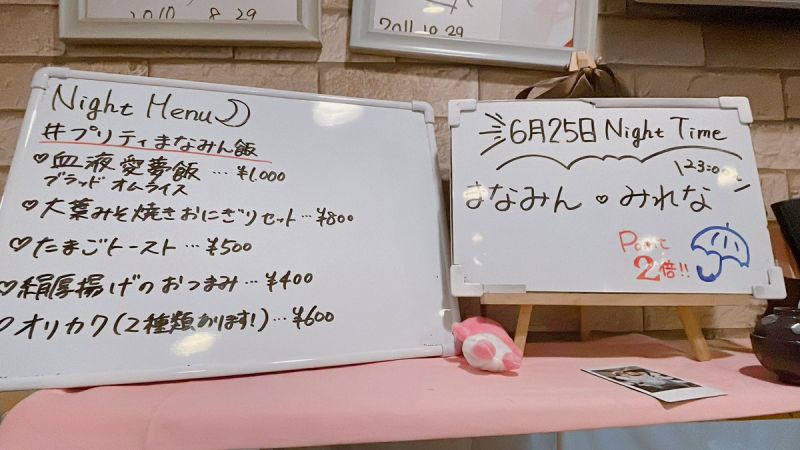 2010 8.29
2011.10.29
Night Menu
#プリティまなみん飯
♡血液愛夢飯…¥1,000
ブラッド オムライス
♡大葉みそ焼きおにぎりセット…¥800
♡たまごトースト…¥500
♡絹厚揚げのおつまみ…¥400
♡オリカク(2種類あります!)…¥600
6月25日 Night Time
23:00〜
まなみん♥みれな
Point
2倍!!